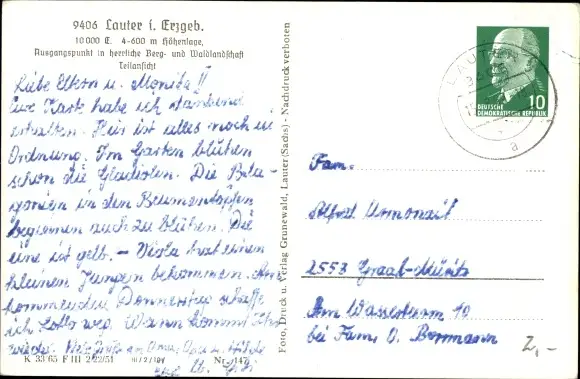 9406 Lauter i. Erzgeb.
10 000 E. 4-600 m Höhenlage,
Ausgangspunkt in herrliche Berg- und Waldlandschaft
Teilansicht
Liebe Eltern u. Monika!!
Eure Karte habe ich dankend
erhalten. Hier ist alles noch in
Ordnung. Im Garten blühen
schon die Gladiolen. Die Bela-
gonien in den Blumentöpfen
beginnen auch zu blühen. Die
eine ist gelb. – Viola hat einen
kleinen Jungen bekommen. Am
kommenden Donnerstag schaffe
ich Lotto weg. Wann kommt Ihr
wieder.
K 33/65 F III 2 22/51
Nr. 147
Foto, Druck u. Verlag Grunewald, Lauter (Sachs) - Nachdruck verboten
LAUTER
DEUTSCHE
DEMOKRATISCHE REPUBLIK
10
a
Fam.
Alfred Armonait
2553 Graal-Müritz
Am Wasserturm 10
bei Fam. O. Bormann
2,-